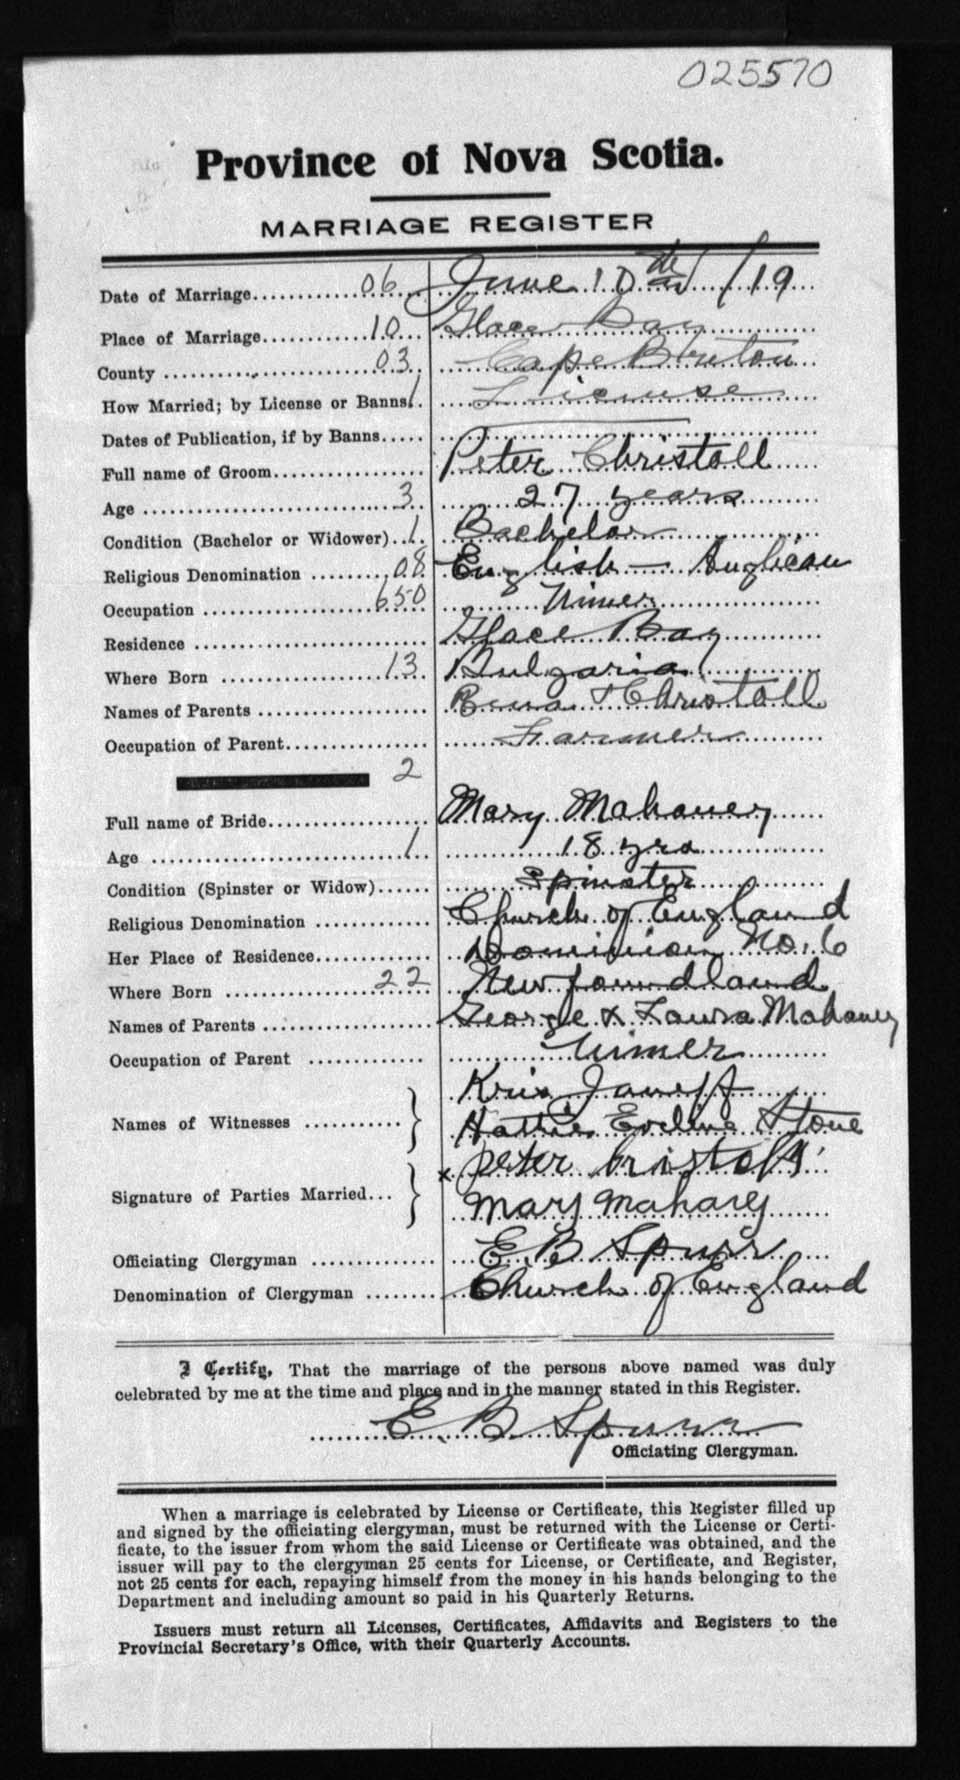 025570
Province of Nova Scotia.
MARRIAGE REGISTER
Date of Marriage 06 June 10th /19
Place of Marriage 10 Glace Bay
County 03 Cape Breton
How Married; by License or Banns 1 License
Dates of Publication, if by Banns
Full name of Groom Peter Christoll
Age 3 27 years
Condition (Bachelor or Widower) 1 Bachelor
Religious Denomination 08 English — Anglican
Occupation 650 Miner
Residence Glace Bay
Where Born 13 Bulgaria
Names of Parents & Christoll
Occupation of Parent Farmer
2
Full name of Bride Mary Mahaney
Age 1 18 yrs
Condition (Spinster or Widow) Spinster
Religious Denomination Church of England
Her Place of Residence Dominion No. 6
Where Born 22 Newfoundland
Names of Parents George & Laura Mahaney
Occupation of Parent Miner
Names of Witnesses } Kris Janeff
Hattie Eveline Stone
Signature of Parties Married } x peter bristoff
Mary Mahaney
Officiating Clergyman E B Spurr
Denomination of Clergyman Church of England
I Certify, That the marriage of the persons above named was duly
celebrated by me at the time and place and in the manner stated in this Register.
E. B. Spurr
Officiating Clergyman.
When a marriage is celebrated by License or Certificate, this Register filled up
and signed by the officiating clergyman, must be returned with the License or Certi-
ficate, to the issuer from whom the said License or Certificate was obtained, and the
issuer will pay to the clergyman 25 cents for License, or Certificate, and Register,
not 25 cents for each, repaying himself from the money in his hands belonging to the
Department and including amount so paid in his Quarterly Returns.
Issuers must return all Licenses, Certificates, Affidavits and Registers to the
Provincial Secretary's Office, with their Quarterly Accounts.